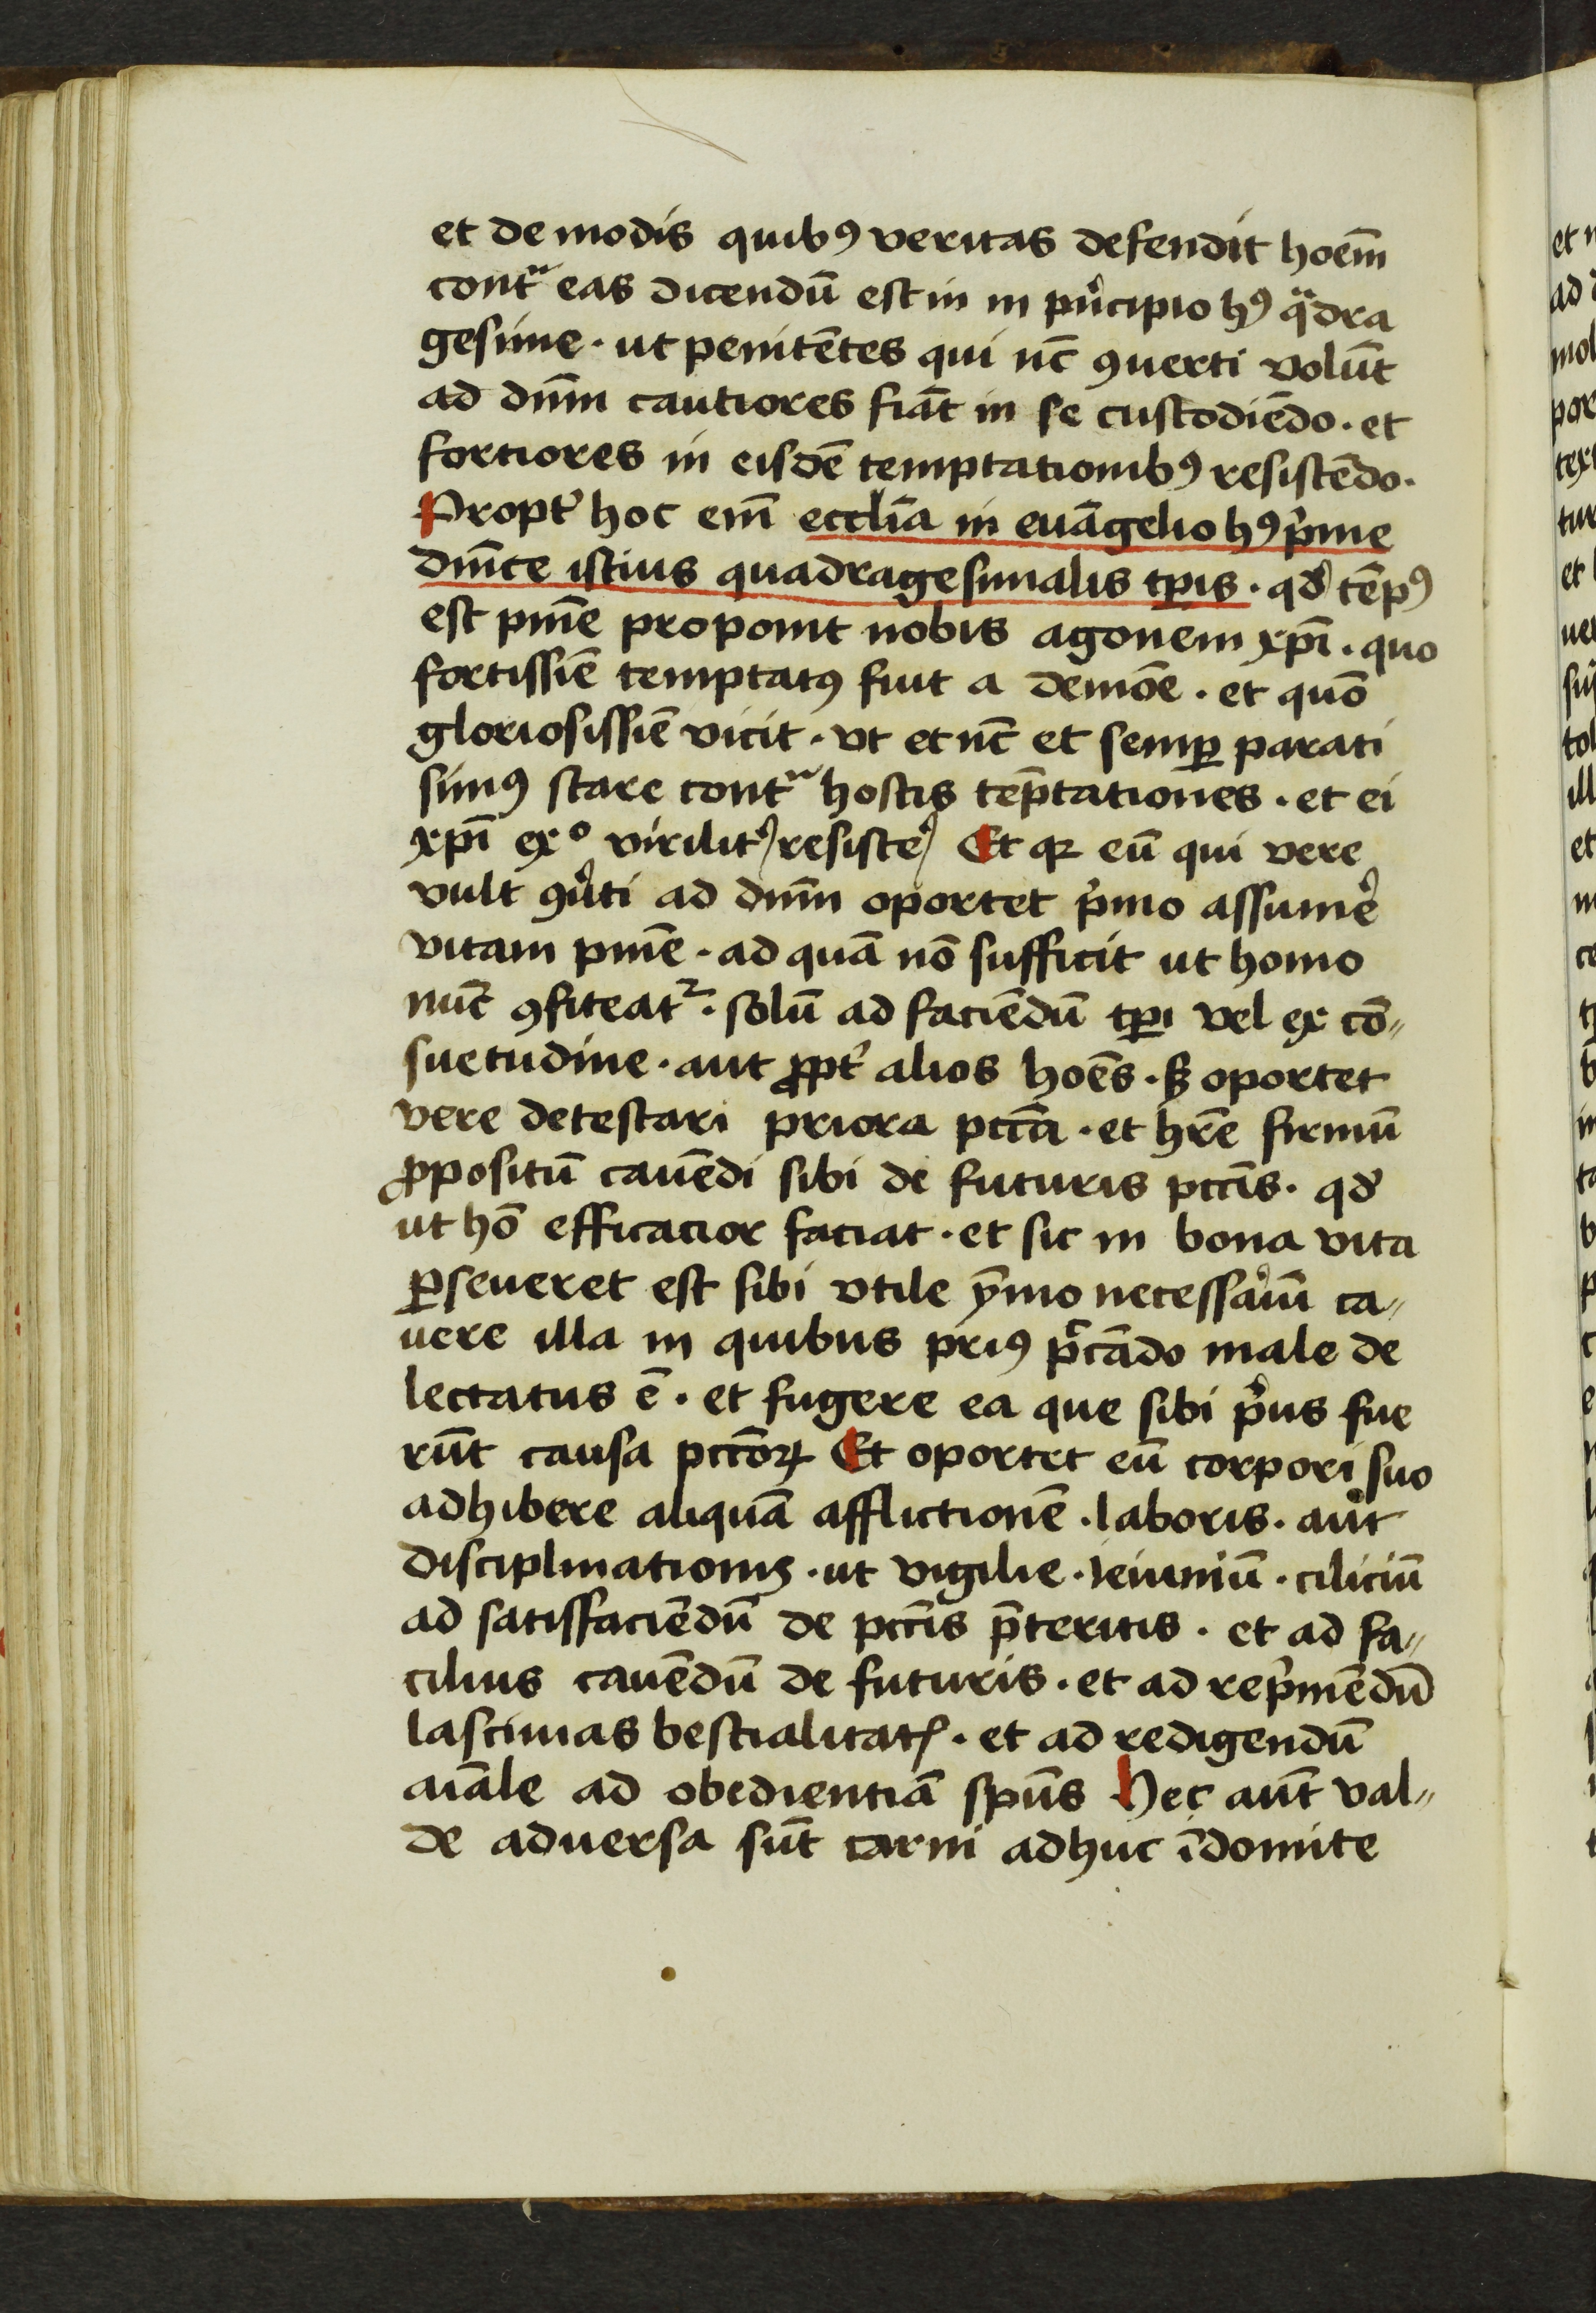 et de modis quibꝰ veritas defendit hoēm
contᷓ eas dicendū est in in pͥncipio hꝰ qᷓdra
gesime · ut penitētes qui nūc ꝯuerti volūt
ad dn̄m cautiores fiāt in se custodiēdo · et
fortiores in eisdē temptationibꝰ resistēdo ·
Propt̛ hoc em̄ eccl̄ia in euāgelio hꝰ pͥme
dn̄ice istius quadragesimalis tꝑis · qd̛ tēpꝰ
est pn̄ie proponit nobis agonem xp̄i · quo
fortissīe temptatꝰ fuit a demōe · et quō
gloriosissīe vicit · vt et nūc et semꝑ parati
simꝰ stare contᷓ hostis tēp̄tationes · et ei
xp̄i exº virilit̛ resiste̛ Et qꝛ eū qui vere
vult ꝯưti ad dn̄m oportet pͥmo assume̛
vitam pn̄ie · ad quā nō sufficit ut homo
nūc ꝯfiteatᷣ · solū ad faciēdū tꝑi vel ex cō„
suetudine · aut ꝓpt̛ alios hoēs · sꝫ oportet
vere detestari priora pccā · et hr̄e firmū
ꝓpositū cauēdi sibi de futuris pccīs · qd̛
ut hō efficacior faciat · et sic in bona vita
ꝑseueret est sibi vtile ȳmo necessaͥum ca„
uere illa in quibus priꝰ p̄ccādo male de
lectatus ē · et fugere ea que sibi pͥus fue
rūt causa pccōꝝ Et oportet eū corpori suo
adhibere aliquā afflictionē · laboris · aut
disciplinationis · ut vigilie · ieiuniū · ciliciū
ad satisfaciēdū de pccīs p̄teritis · et ad fa„
cilius cauēdū de futuris · et ad repͥmēdū
lasciuias bestialitatꝭ · et ad redigendū
aīale ad obedientiā spūs Hec aūt val„
de aduersa sūt carni adhuc īdomite